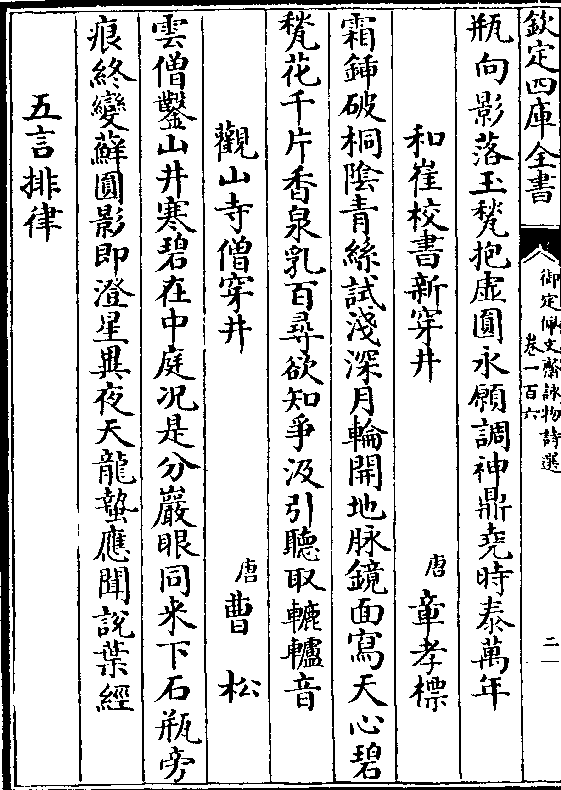 欽定四庫全書
御定佩文齋詠物詩選
卷一百六
二
瓶向影落玉甃抱虛圓永願調神鼎堯時泰萬年
和崔校書新穿井 唐 章孝標
霜鍤破桐陰青絲試淺深月輪開地脉鏡面寫天心碧
甃花千片香泉乳百尋欲知爭汲引聽取轆轤音
觀山寺僧穿井 唐 曹松
雲僧鑿山井寒碧在中庭况是分巖眼同来下石瓶旁
痕終變蘚圓影即澄星異夜天龍蟄應聞説葉經
五言排律